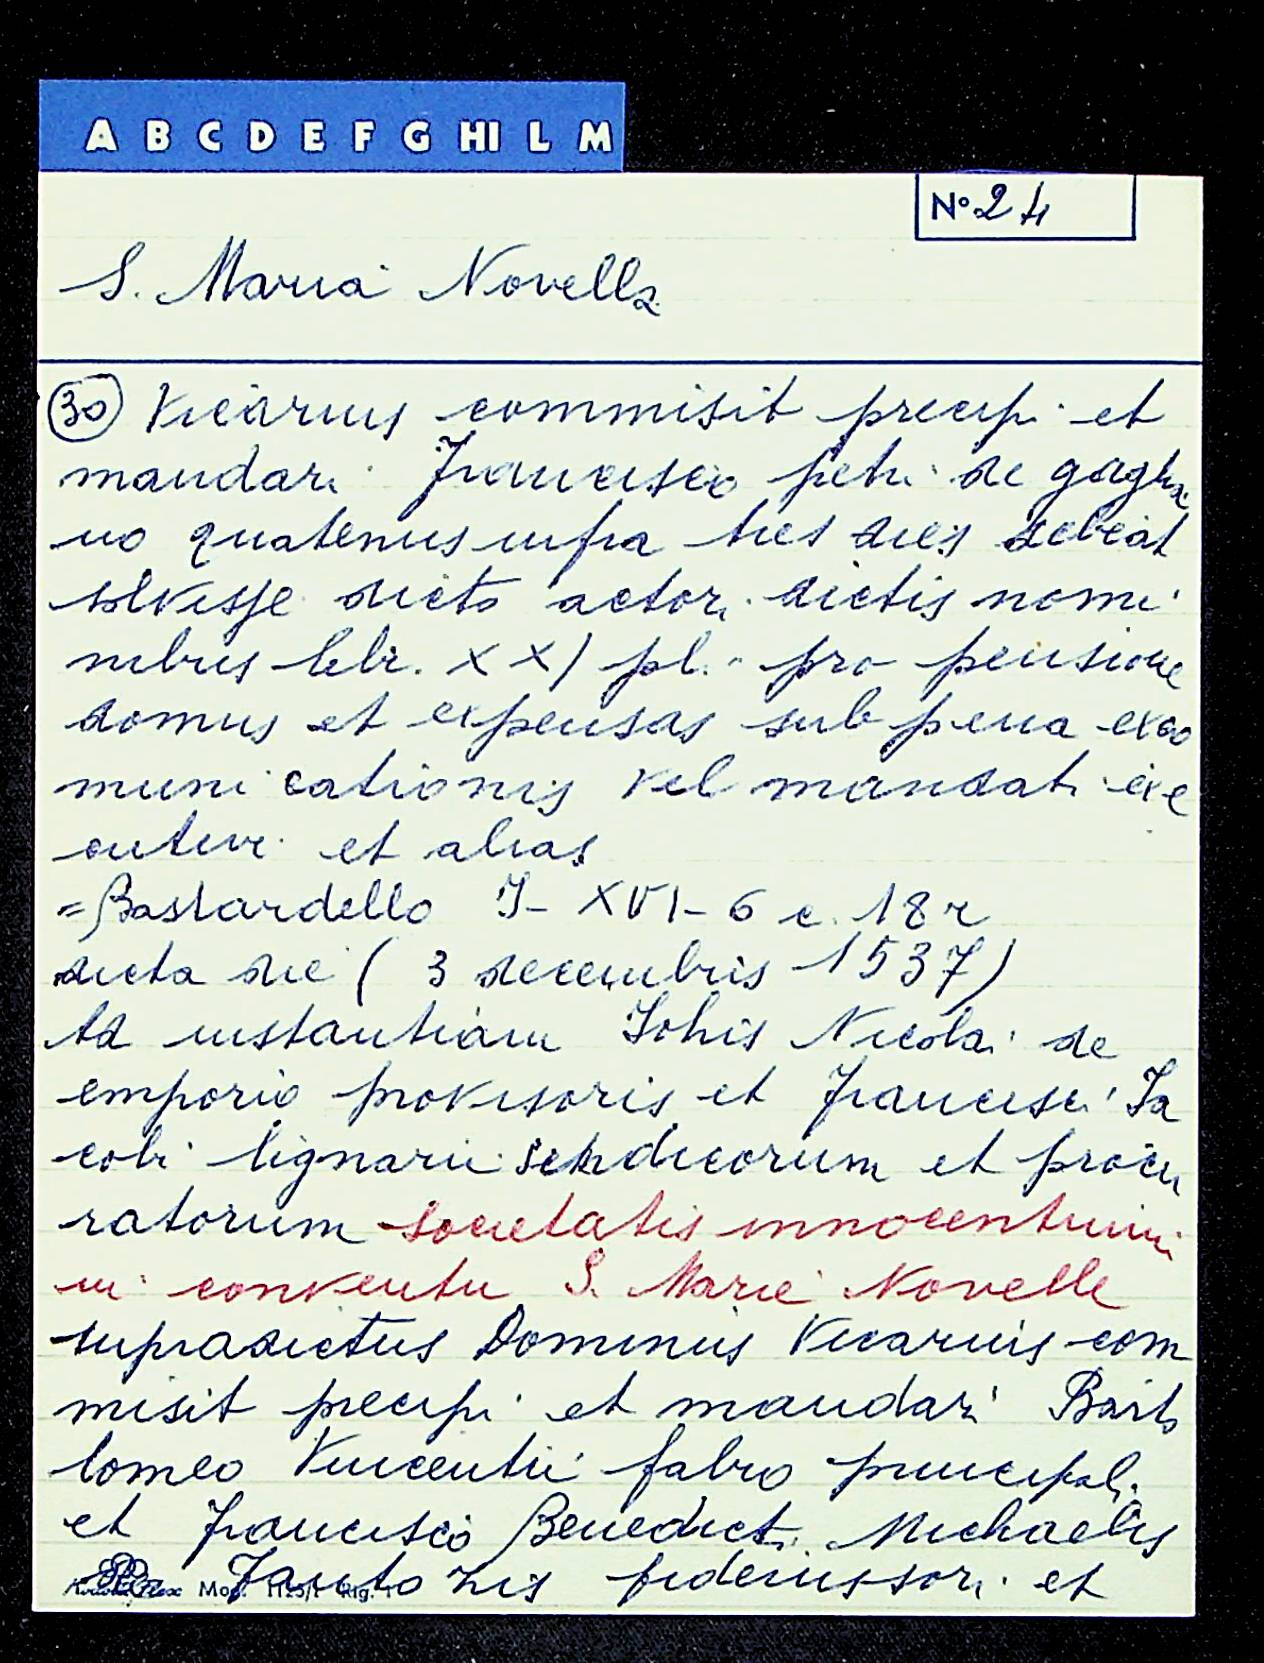 A B C D E F G HI L M
N° 24
S. Maria Novella
30 Vicarius commisit precipi et
mandari Francisco petri de gaglia
no quatenus infra tres dies debeat
solvisse dicto actori dictis nomi
nibus libr. XXI pl. pro pensione
domus et expensas sub pena exco
municationis vel mandati exe
cutivi et alias
= Bastardello I- XVI- 6 c. 18 r
dicta die ( 3 decembris 1537)
Ad instantiam Johis Nicolai de
emporio provisoris et Francisci Ja
cobi lignarii sindicorum et procu
ratorum societatis innocentium
in conventu S. Marie Novelle
supradictus Dominus Vicarius com
misit precipi et mandari Barto
lomeo Vincentii fabro principali
et Francisco Benedicti Michaelis
fideiussori et